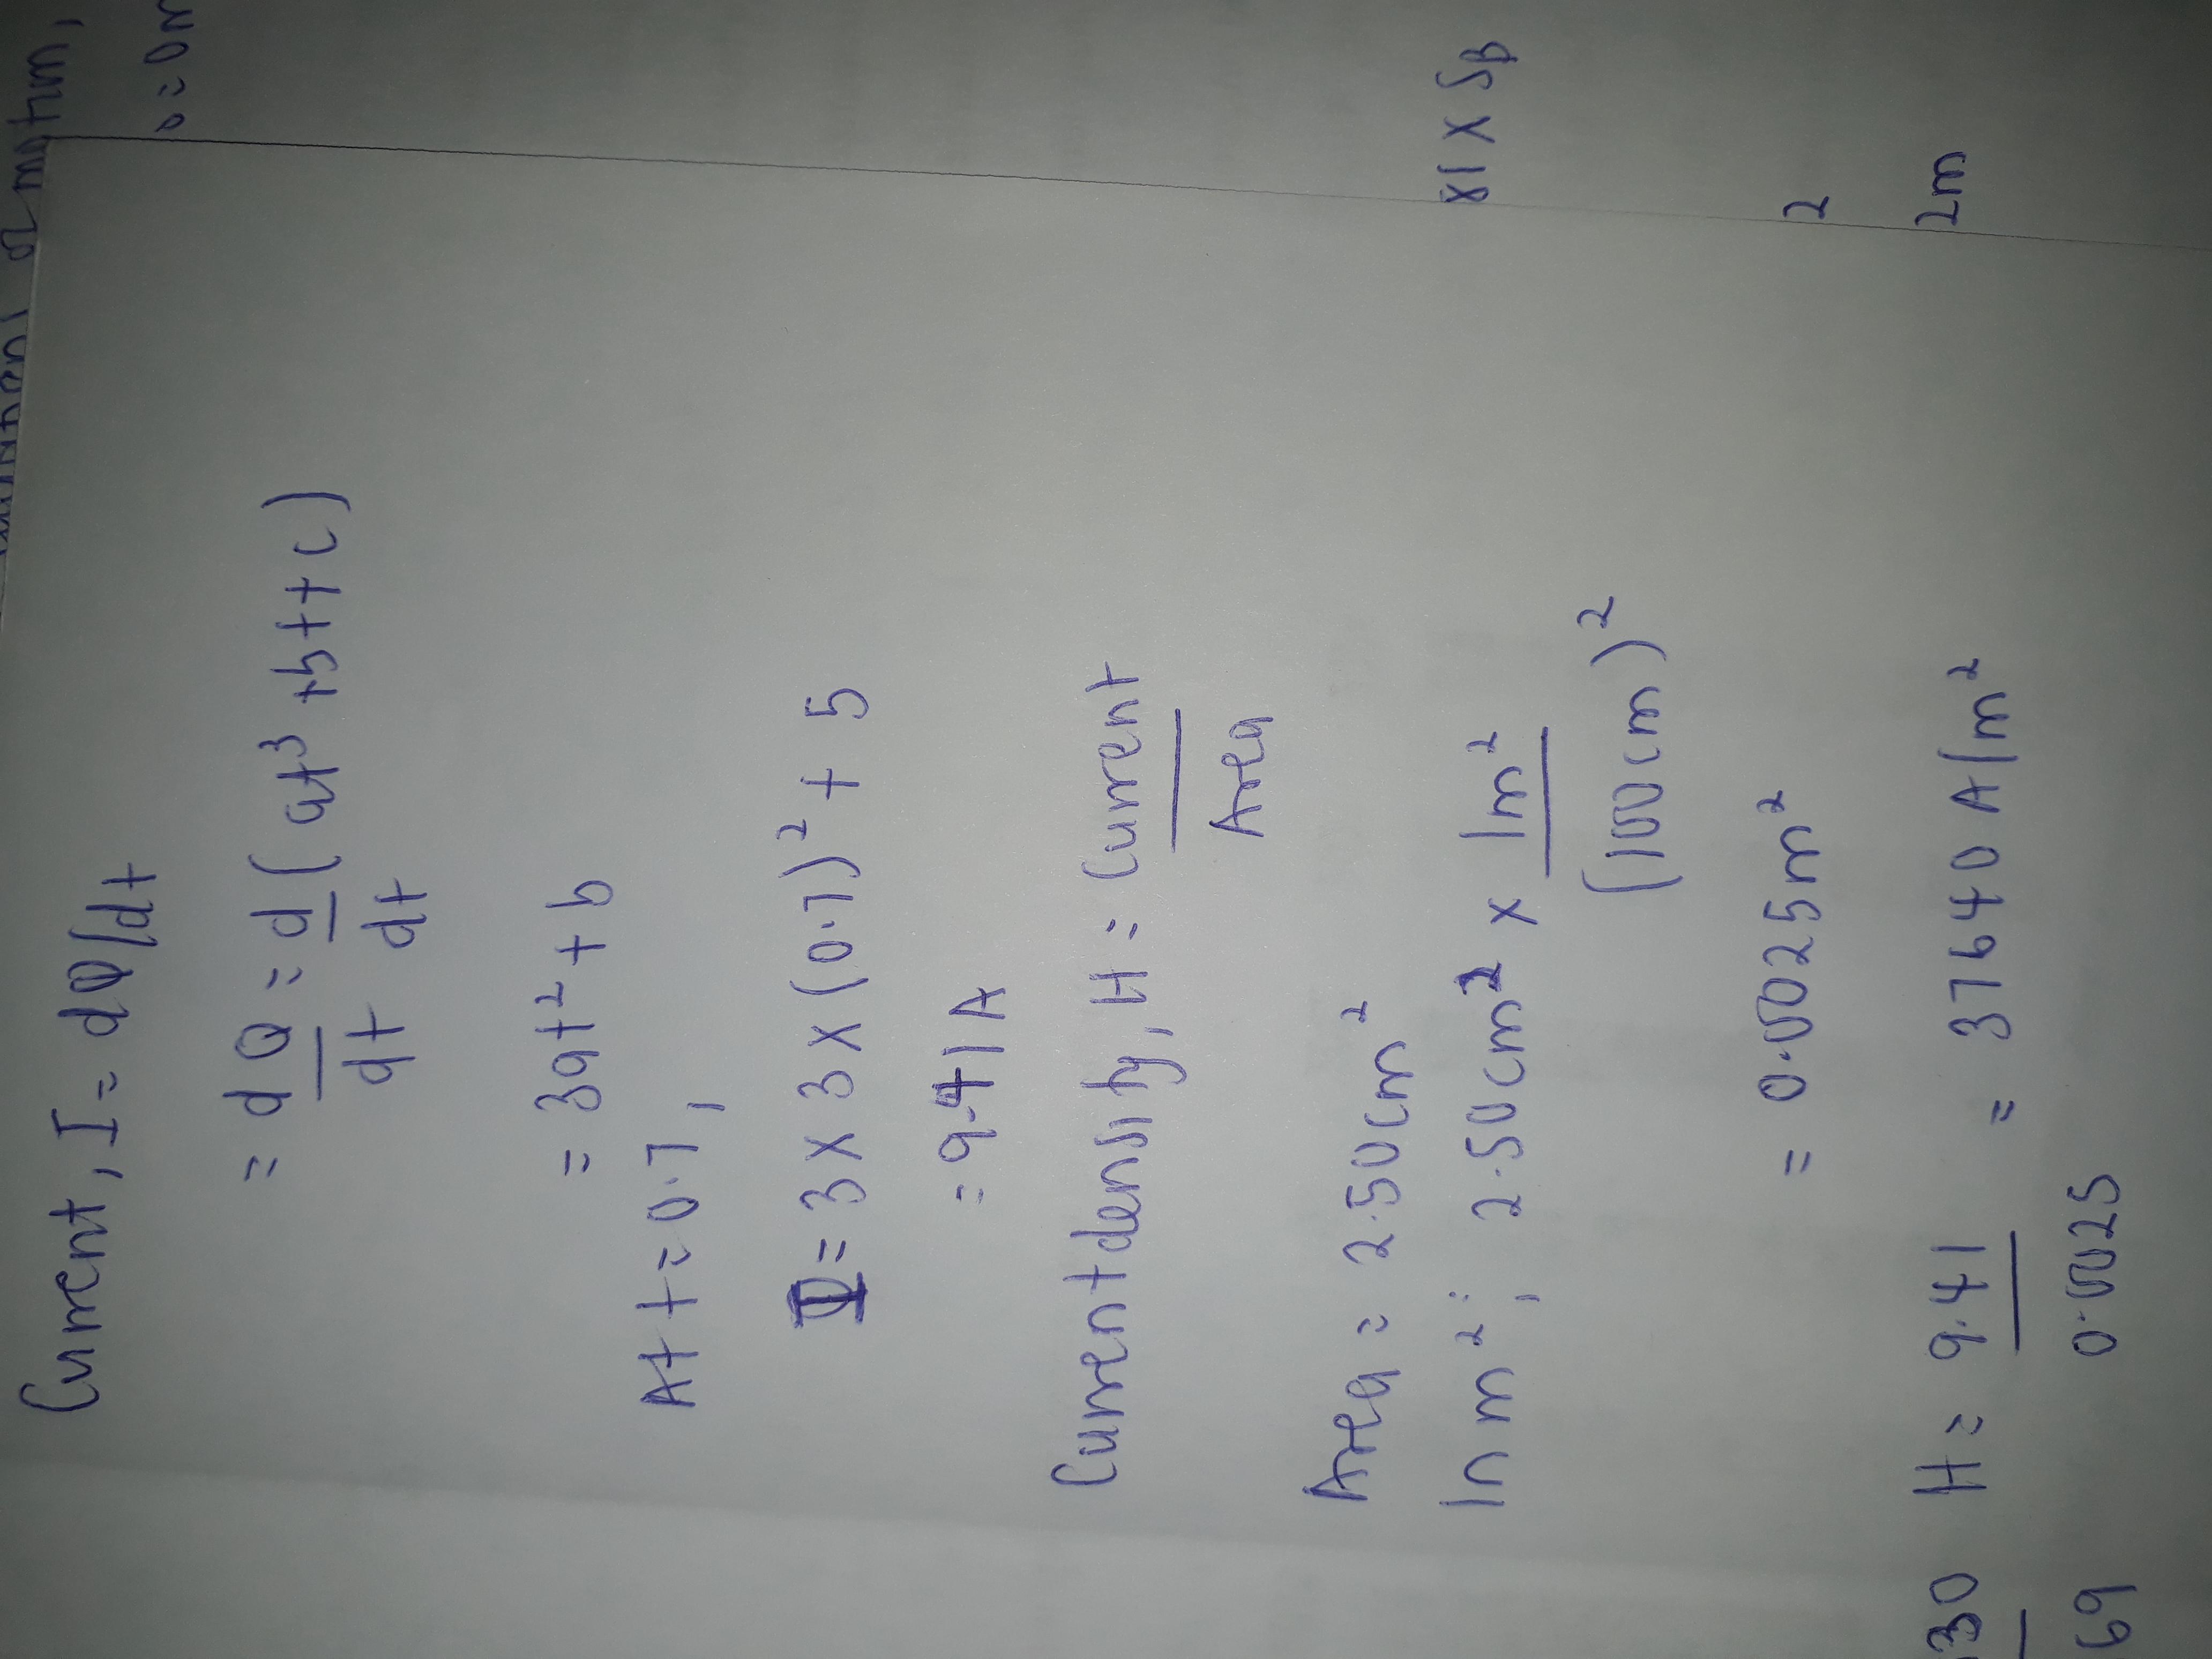 Current, I = dQ/dt
= dQ/dt = d/dt (at³ + bt + c)
= 3at² + b
At t = 0.7,
I = 3 x 3 x (0.7)² + 5
= 9.41A
Current density, H = Current/Area
Area = 2.50cm²
In m²; 2.50cm² x 1m²/(100cm)²
= 0.00025m²
H = 9.41/0.00025 = 37640 A/m²
30
69
of motion,
81 x
2
2m